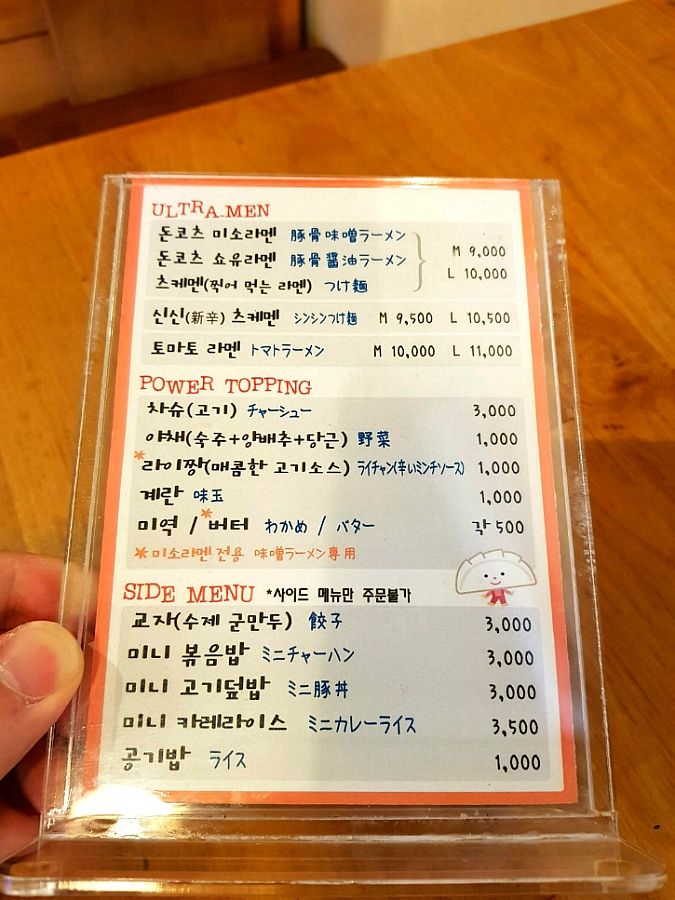 ULTRA-MEN
돈코츠 미소라멘 豚骨味噌ラーメン
돈코츠 쇼유라멘 豚骨醤油ラーメン
M 9,000
L 10,000
츠케멘(찍어 먹는 라멘) つけ麺
신신(新辛) 츠케멘 シンシンつけ麺 M 9,500 L 10,500
토마토 라멘 トマトラーメン M 10,000 L 11,000
POWER TOPPING
차슈(고기) チャーシュー 3,000
야채(숙주+양배추+당근) 野菜 1,000
*라이짱(매콤한 고기소스) ライチャン(辛いミンチソース) 1,000
계란 味玉 1,000
미역 / *버터 わかめ / バター 각 500
*미소라멘 전용 味噌ラーメン専用
SIDE MENU *사이드 메뉴만 주문불가
교자(수제 군만두) 餃子 3,000
미니 볶음밥 ミニチャーハン 3,000
미니 고기덮밥 ミニ豚丼 3,000
미니 카레라이스 ミニカレーライス 3,500
공기밥 ライス 1,000